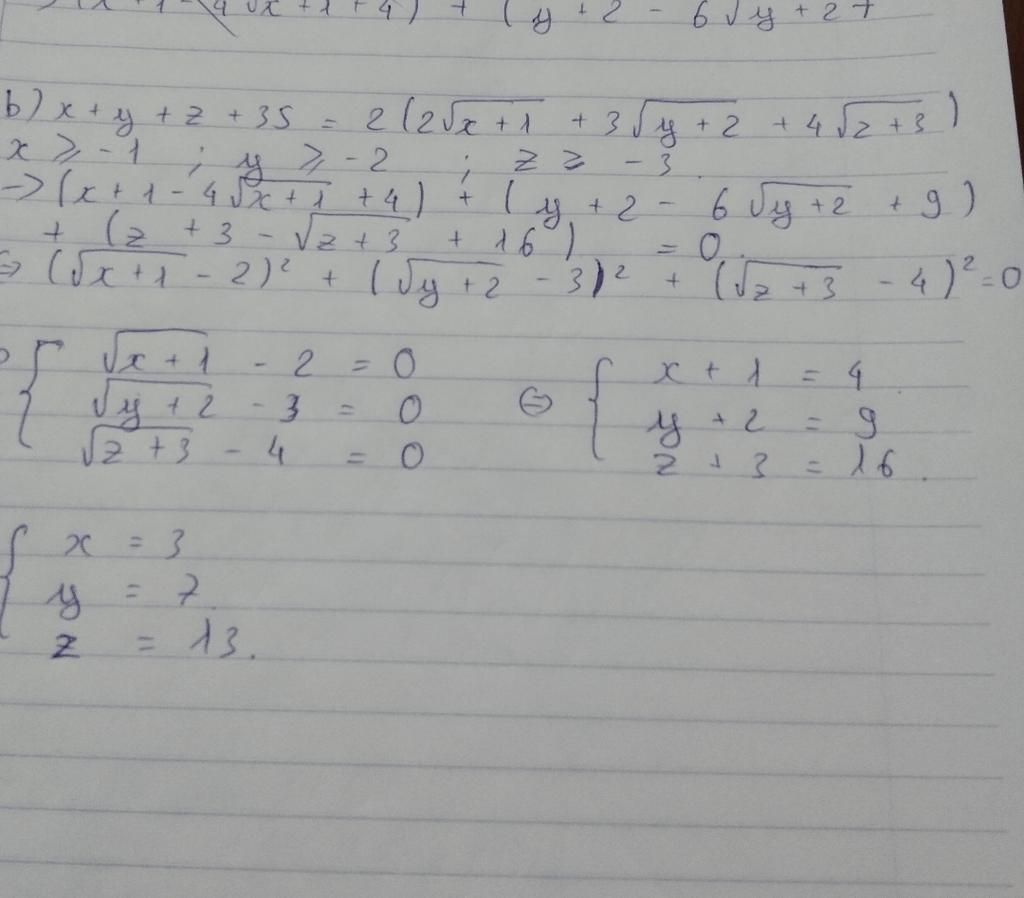 (x + 1 - 4√x+1 + 4) + (y + 2 - 6√y+2 +
b) x + y + z + 35 = 2(2√x+1 + 3√y+2 + 4√z+3)
x ⩾ -1 ; y ⩾ -2 ; z ⩾ -3.
→ (x + 1 - 4√x+1 + 4) + (y + 2 - 6√y+2 + 9)
+ (z + 3 - √z+3 + 16) = 0.
⇔ (√x+1 - 2)² + (√y+2 - 3)² + (√z+3 - 4)² = 0
{ √x+1 - 2 = 0 ⇔ { x + 1 = 4
√y+2 - 3 = 0 y + 2 = 9
√z+3 - 4 = 0 z + 3 = 16.
{ x = 3
y = 7
z = 13.